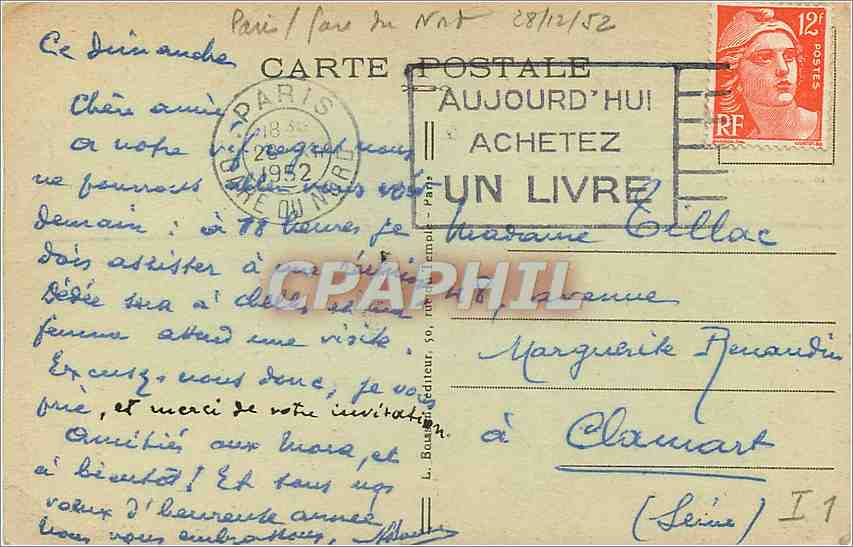 Paris / Gare du Nord 28/12/52
Ce Dimanche
CARTE POSTALE
PARIS
18
28
1952
GARE DU NORD
AUJOURD'HUI
ACHETEZ
UN LIVRE
12F
POSTES
RF
Chère amie
A notre vif regret nous
ne pourrons aller vous voir
demain : à 18 heures je
dois assister à une réunion
Dédée sera à et ma
femme attend une visite.
Excusez-nous donc, je vous
prie, et merci de votre invitation.
Amitiés aux et
à bientôt ! Et tous nos
vœux d'heureuse année
Nous vous embrassons,
CPAPHIL
L. éditeur, 50, rue du Temple - Paris
Madame Tillac
48, avenue
Marguerite Renaudin
à Clamart
(Seine)
I 1